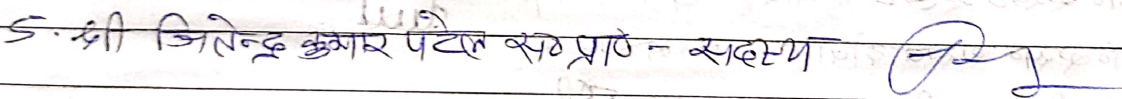 5. श्री जितेन्द्र कुमार पटेल स० प्रा० - सदस्य